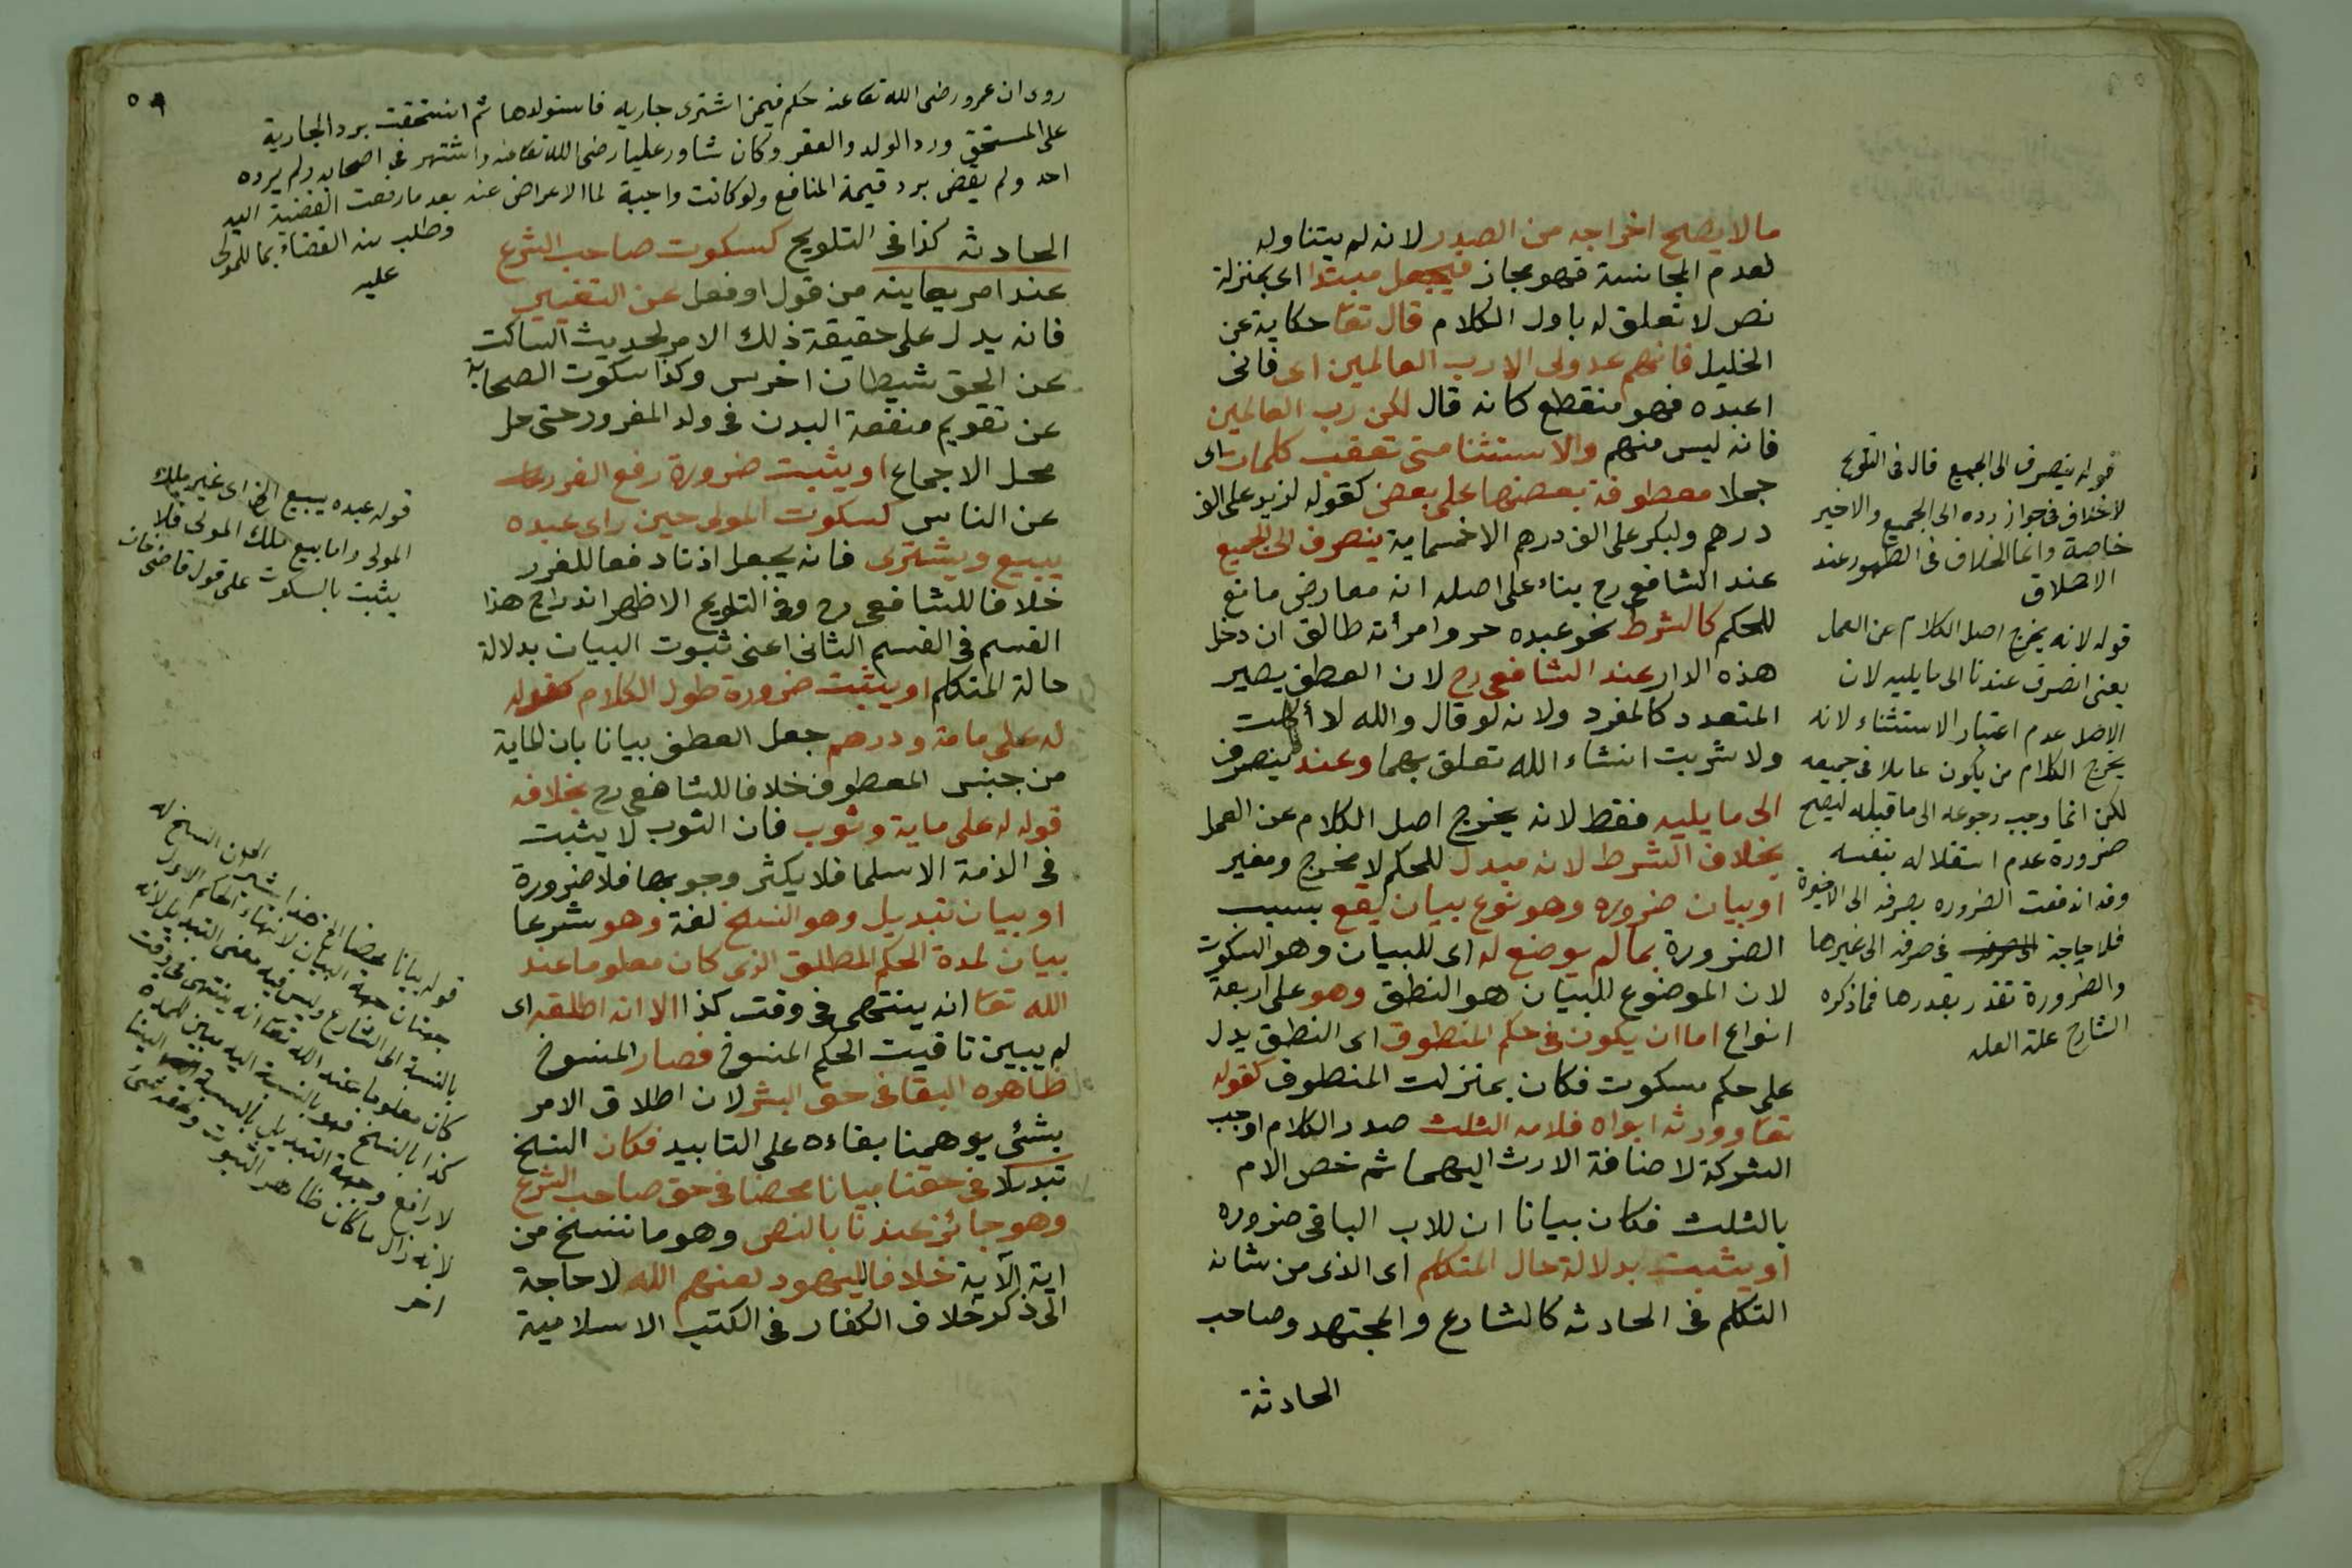 ما لا يصح اخراجه من الصدر لانه لم يتناوله
لعدم المجانسة فهو مجاز فيجعل مبتدا اى بمنزلة
نص لا تعلق له باول الكلام قال تعا حكاية عن
الخليل فانهم عدو لى الا رب العالمين اى فانى
اعبده فهو منقطع كانه قال لكن رب العالمين
فانه ليس منهم والاستثنا متى تعقب كلمات اى
جملا معطوفة بعضها على بعض كقوله لزيد على الف
درهم ولبكر على الف درهم الا خمسماية ينصرف الى الجميع
عند الشافعى رح بناء على اصله انه معارض مانع
للحكم كالشرط نحو عبده حر وامرأته طالق ان دخل
هذه الدار عند الشافعى رح لان العطف يصير
المتعدد كالمفرد ولانه لو قال والله لا أكلت
ولا شربت انشاء الله تعلق بهما وعندنا ينصرف
الى ما يليه فقط لانه يخرج اصل الكلام عن العمل
بخلاف الشرط لانه مبدل للحكم لا مخرج ومغير
او بيان ضروره وهو نوع بيان يقع بسبب
الضرورة بما لم يوضع له اى للبيان وهو السكوت
لان الموضوع للبيان هو النطق وهو على اربعة
انواع اما ان يكون فى حكم المنطوق اى النطق يدل
على حكم سكوت فكان بمنزلت المنطوف كقوله
تعا وورثه ابواه فلامه الثلث صدر الكلام اوجب
الشركة لاضافة الارث اليهما ثم خص الام
بالثلث فكان بيانا ان للاب الباقى ضروره
او يثبت بدلالة حال المتكلم اى الذى من شانه
التكلم فى الحادثه كالشارع والمجتهد وصاحب
الحادثة
قوله ينصرف الى الجميع قال فى التلويح
لا خلاف فى جواز رده الى الجميع والاخير
خاصة وانما الخلاف فى الظهور عند
الاطلاق
قوله لانه يخرج اصل الكلام عن العمل
يعنى انصرف عندنا الى ما يليه لان
الاصل عدم اعتبار الاستثناء لانه
يخرج الكلام من يكون عاملا فى جميعه
لكن انما وجب رجوعه الى ما قبله ليصح
ضرورة عدم استقلاله بنفسه
وقد اندفعت الضروره بصرفه الى الاخيرة
فلا حاجة فى صرفه الى غيرها
والضرورة تقدر بقدرها فما ذكره
الشارح علة العله
٥٩
روى ان عمر ورضى الله تعا عنه حكم فيمن اشترى جاريه فاستولدها ثم استحقت برد الجارية
على المستحق ورد الولد والعقر وكان شاور عليا رضى الله تعا عنه واشتهر فى اصحابه ولم يرده
احد ولم يقض برد قيمة المنافع ولو كانت واجبة لما الاعراض عنه بعد ما رفعت القضية اليه
وطلب منه القضاء بما للمولى
عليه
الحادثه كذا فى التلويح كسكوت صاحب الشرع
عند امر يعاينه من قول او فعل عن التغيير
فانه يدل على حقيقة ذلك الامر لحديث الساكت
عن الحق شيطان اخرس وكذا سكوت الصحابة
عن تقويم منفعة البدن فى ولد المغرور حتى حل
محل الاجماع او يثبت ضرورة رفع الغرر
عن الناس كسكوت المولى حين راى عبده
يبيع ويشترى فانه يجعل اذنا دفعا للغرر
خلافا للشافعى رح وفى التلويح الاظهر اندراج هذا
القسم فى القسم الثانى اعنى ثبوت البيان بدلالة
حالة المتكلم او يثبت ضرورة طول الكلام كقوله
له على مامة ودرهم جعل العطف بيانا بان الماية
من جنس المعطوف خلافا للشافعى رح بخلافه
قوله له على ماية وثوب فان الثوب لا يثبت
فى الذمة الا سلما فلا يكثر وجوبها فلا ضرورة
او بيان تبديل وهو النسخ لغة وهو شرعا
بيان لمدة الحكم المطلق الذى كان معلوما عند
الله تعا انه ينتهى فى وقت كذا الا انه اطلقه اى
لم يبين تاقيت الحكم المنسوخ فصار المنسوخ
ظاهره البقا فى حق البشر لان اطلاق الامر
بشئى يوهمنا بقاءه على التابيد فكان النسخ
تبديلا فى حقنا بيانا محضا فى حق صاحب الشرع
وهو جائز عندنا بالنص وهو ما ننسخ من
اية الآية خلافا لليهود لعنهم الله لا حاجة
الى ذكر خلاف الكفار فى الكتب الاسلامية
قوله عبده يبيع الخ اى غير ملك
المولى واما بيع ملك المولى فلا
يثبت بالسكوت على قول قاضى خان
قوله بيانا محضا الخ هذا النسخ له
جهتان جهة البيان لانتهاء الحكم الاول
بالنسبة الى الشارع وليس فيه معنى التبديل لانه
كان معلوما عند الله تعا انه ينتهى فى وقت
كذا بالنسخ فهو بالنسبة اليه مبين للمدة
لا رافع وجهة التبديل بالنسبة الينا
لانه زال ما كان ظاهر الثبوت وخلفه شئ
اخر